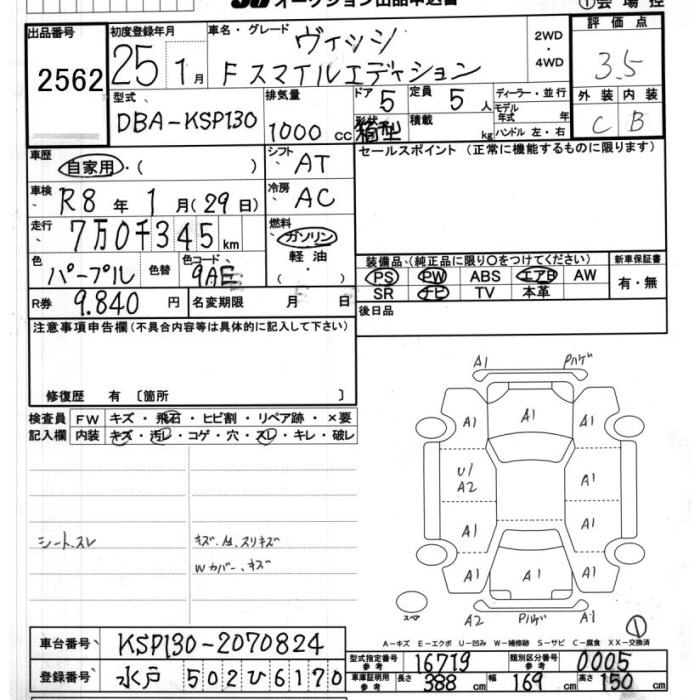 オークション出品申込書
①会場控
出品番号 初度登録年月 車名・グレード ヴィッツ 2WD・4WD 評価点
2562 25年1月 F スマイルエディション 3.5
型式 DBA-KSP130 排気量 1000 cc ドア 5 形状 箱型 定員 5 人 積載 kg ディーラー・並行 モデル年式 年 ハンドル 左・右 外装 C 内装 B
車歴 自家用・( ) シフト AT セールスポイント(正常に機能するものに限ります)
車検 R8年 1月(29日) 冷房 AC
走行 7万0千345km 燃料 ガソリン・軽油・( )
色 パープル 色替 色コード 9AE 装備品(純正品に限り〇をつけてください) 新車保証書
PS PW ABS エアB AW 有・無
R券 9.840円 名変期限 月 日 SR ナビ TV 本革
後日品
注意事項申告欄(不具合内容等は具体的に記入して下さい)
修復歴 有 〔箇所 〕
検査員 FW キズ・飛石・ヒビ割・リペア跡・×要
記入欄 内装 キズ・汚レ・コゲ・穴・スレ・キレ・破レ
シートスレ キズ、
スリキズ
Wカバー、キズ
A1 Pハゲ
A1 A1 A1
U1
A2 A1
A1 A1
A1 A1 A1
スペア A2 Pハゲ A1 ①
A-キズ E-エクボ U-凹み W-補修跡 S-サビ C-腐食 XX-交換済
車台番号 KSP130-2070824
型式指定番号 参考 16719 類別区分番号 参考 0005
登録番号 水戸 502ひ6170
車庫証明用 参考 長さ 388 cm 幅 169 cm 高さ 150 cm